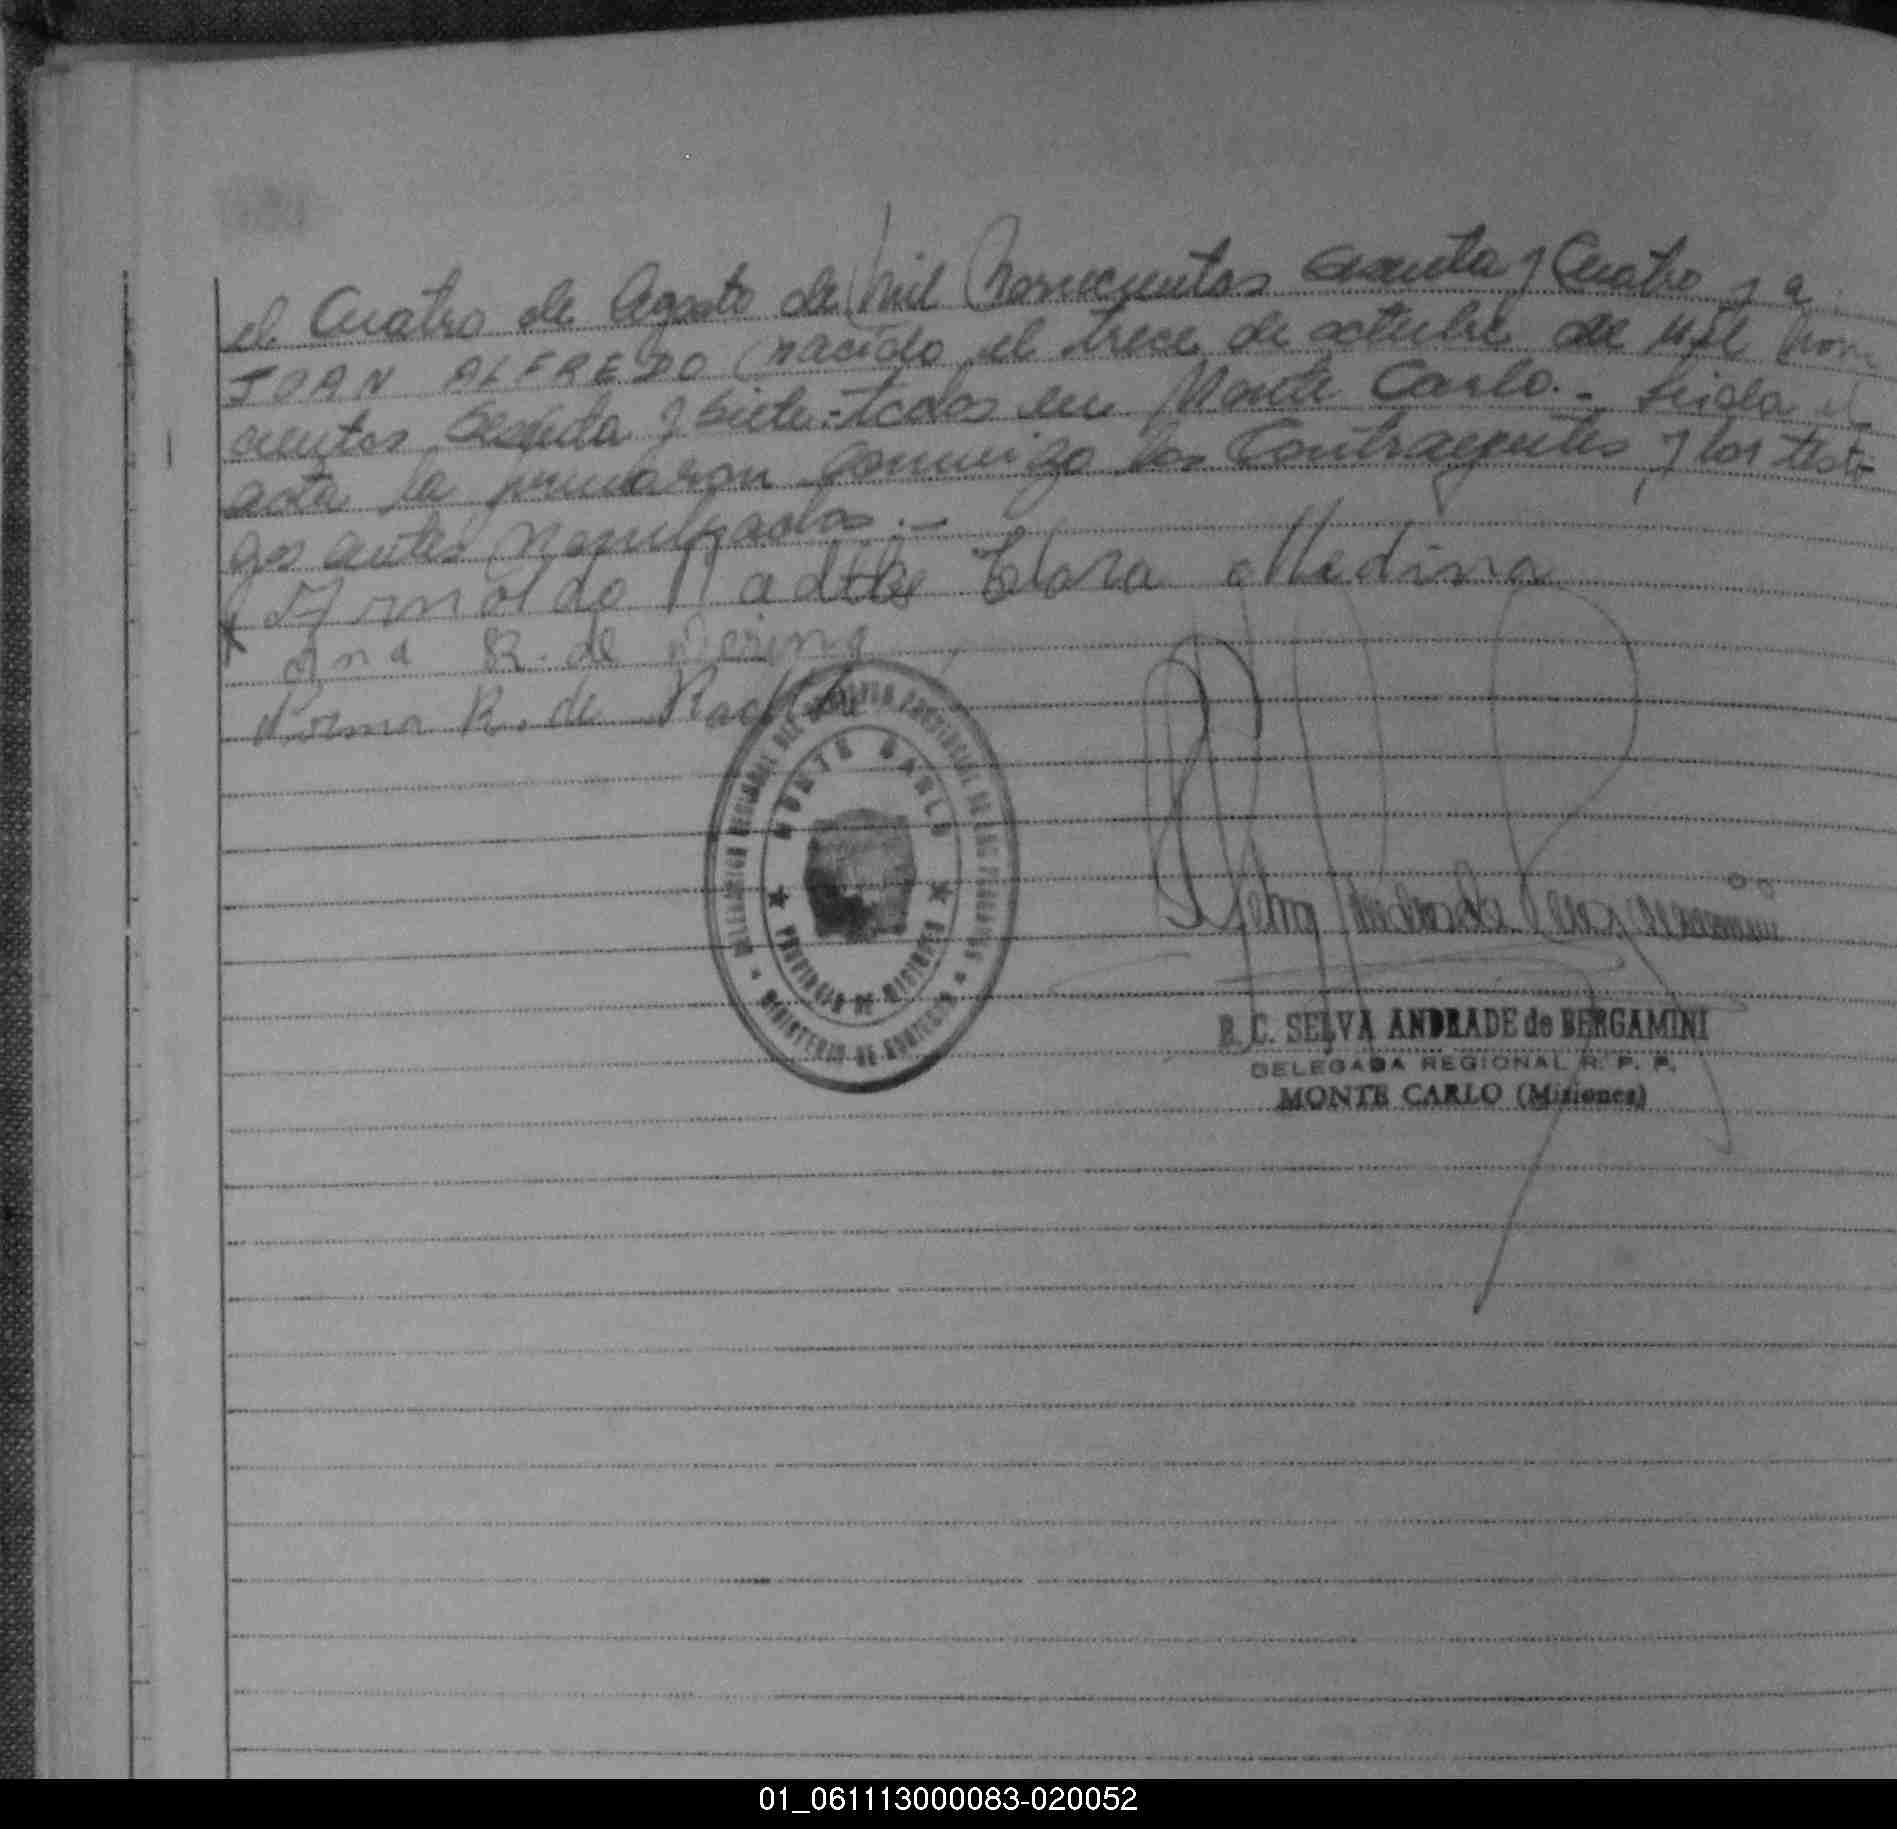 el Cuatro de Agosto de mil novecientos sesenta y Cuatro y a
JUAN ALFREDO nacido el trece de octubre de mil nove
cientos sesenta y siete: todos en Monte Carlo.- Leida el
acta la firmaron conmigo los Contrayentes y los testi-
gos antes nombrados.-
Arnoldo Radtke Clara Medina
Ana R. de
Norma R. de Radtke
DELEGACION REGIONAL DEL REGISTRO PROVINCIAL DE LAS PERSONAS
MONTE CARLO
PROVINCIA DE MISIONES
MINISTERIO DE GOBIERNO
Selva Andrade de Bergamini
R. C. SELVA ANDRADE de BERGAMINI
DELEGADA REGIONAL R. P. P.
MONTE CARLO (Misiones)
01_061113000083-020052